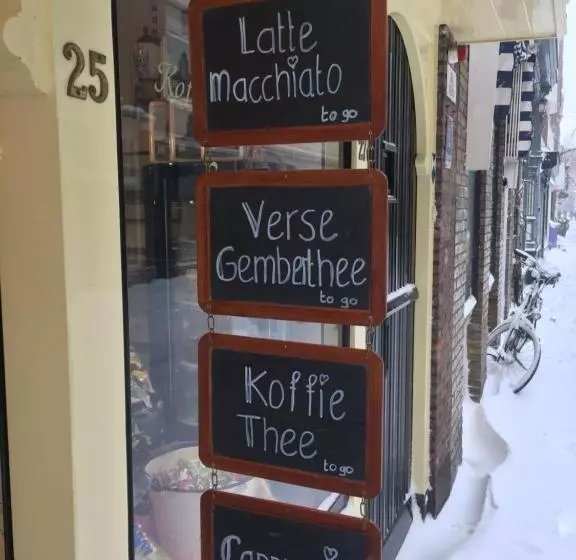 25
Latte
macchiato
to go
Verse
Gemberthee
to go
Koffie
Thee
to go